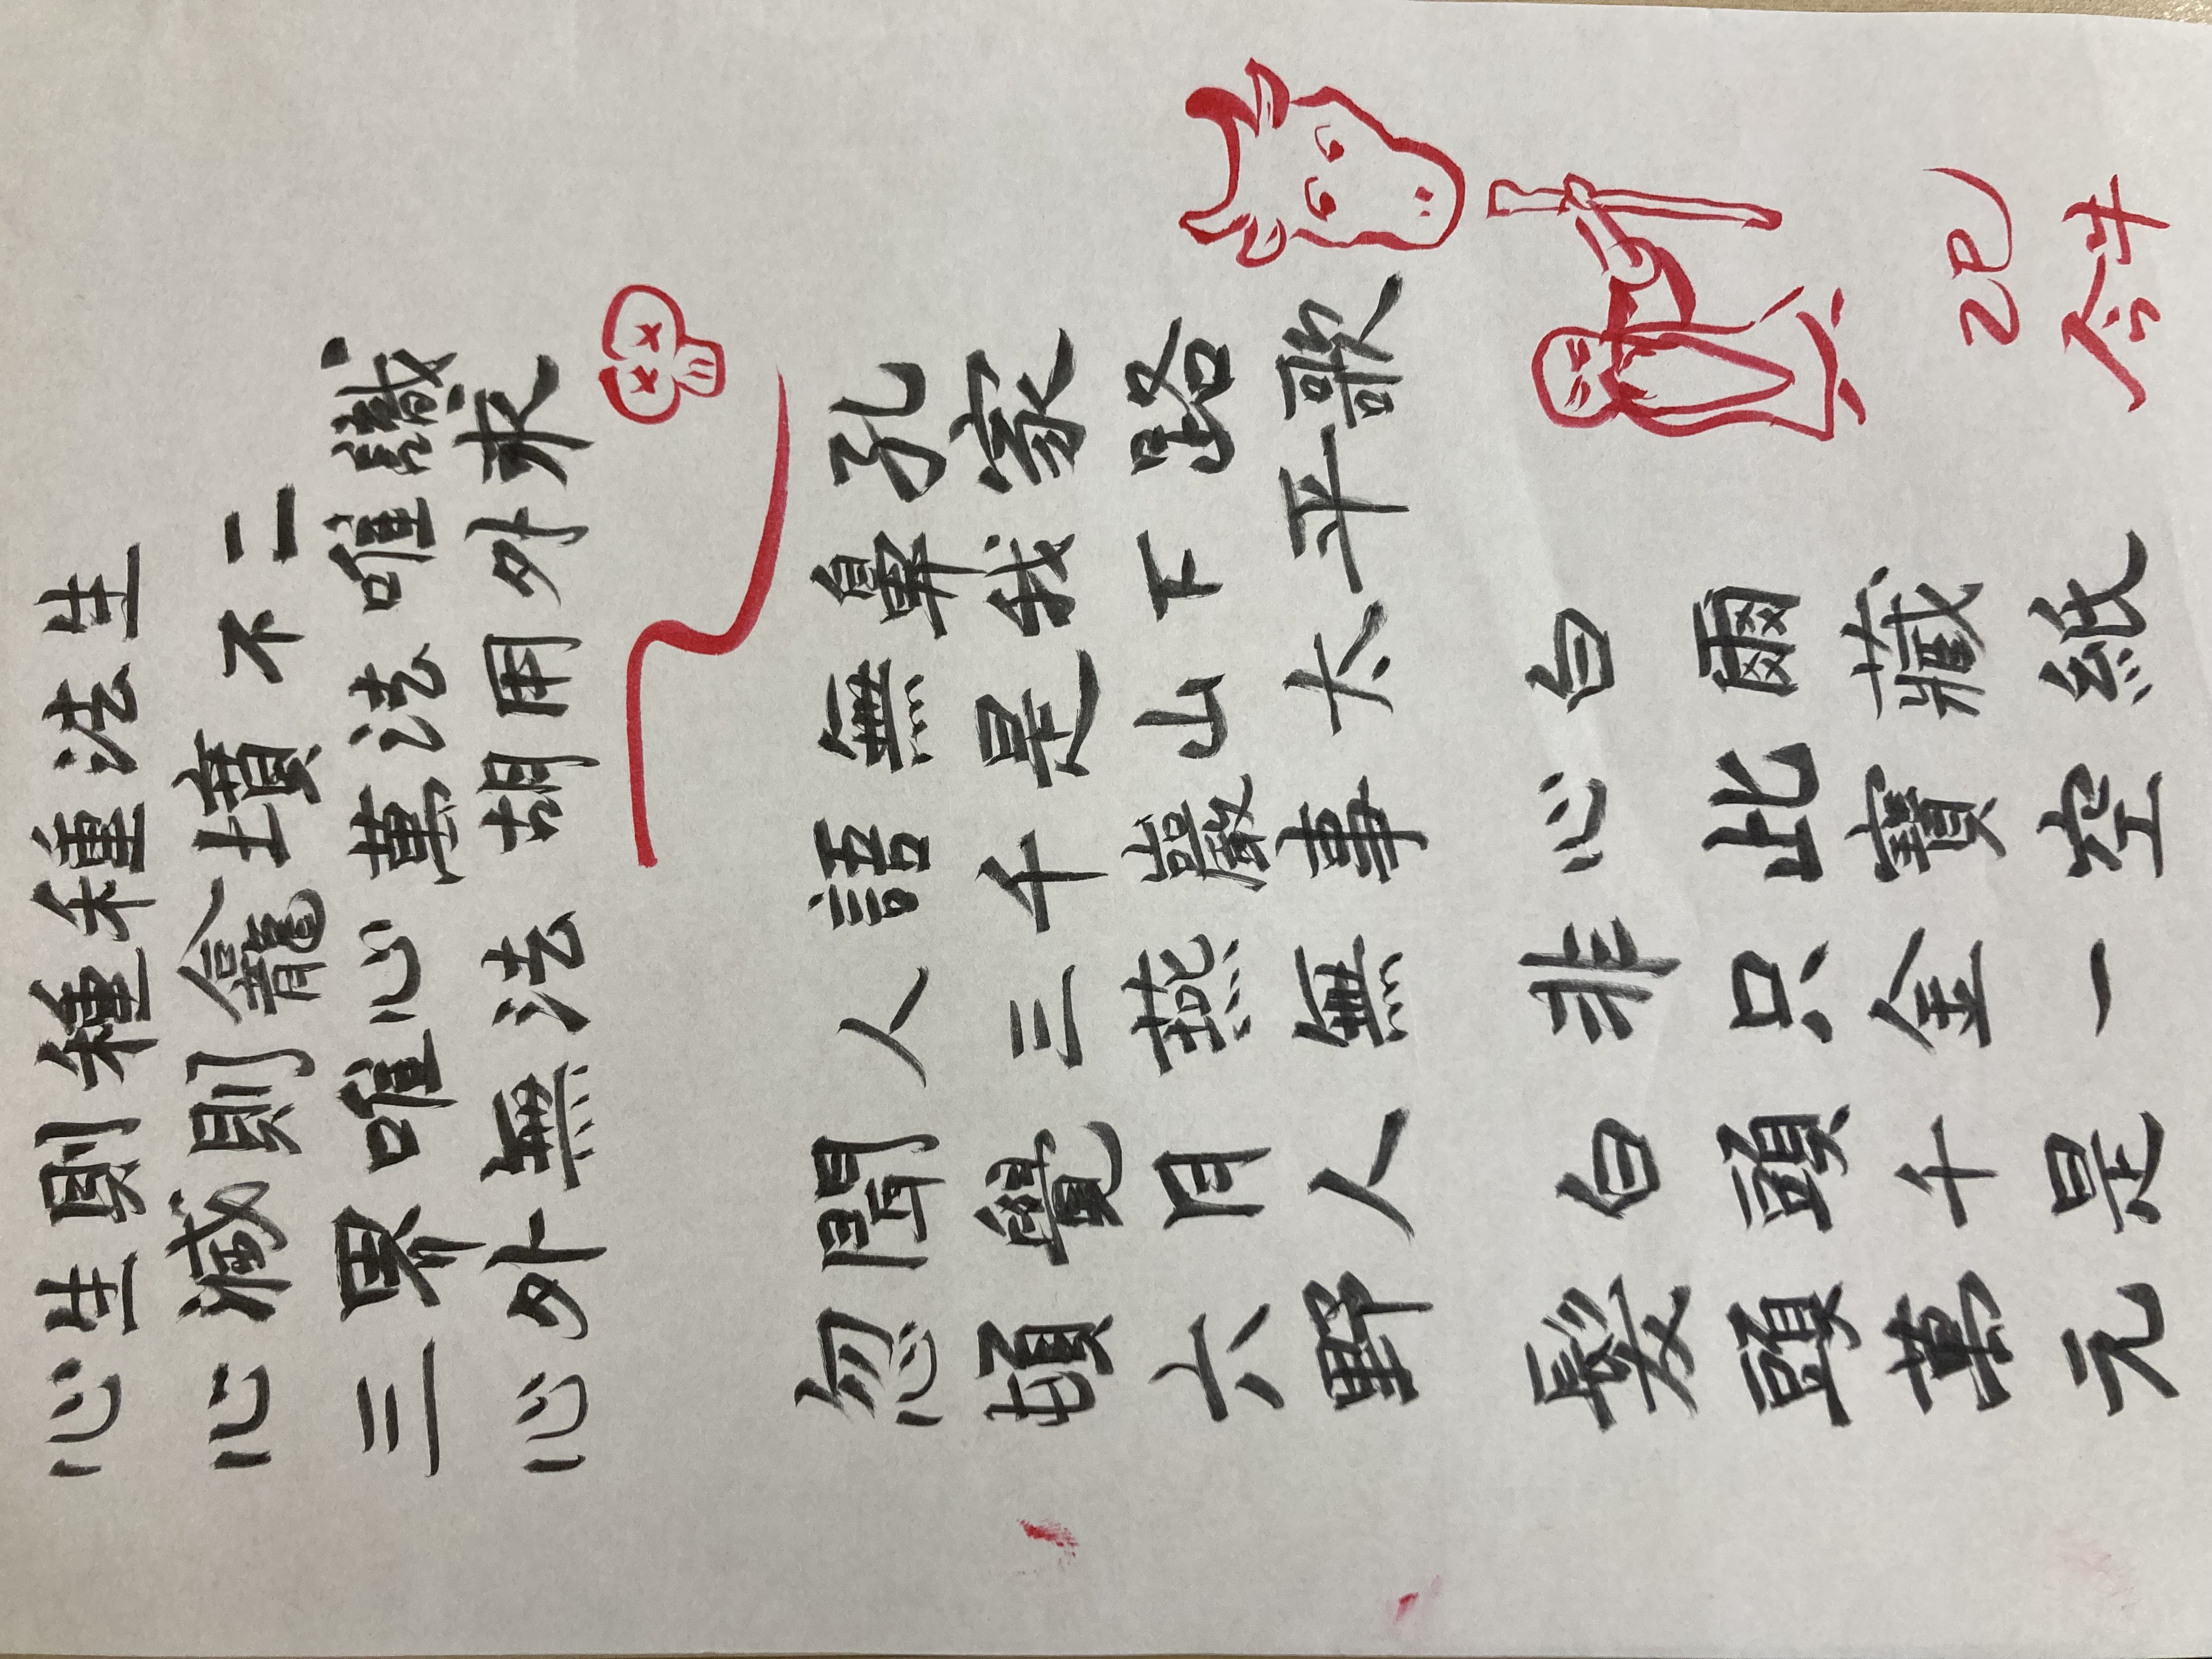 心生則種種法生
心滅則龕墳不二
三界唯心萬法唯識
心外無法胡用外求
忽聞人語無鼻孔
頓覺三千是我家
六月燕巖山下路
野人無事太平歌
髮白非心白
頭頭只此爾
萬千金寶藏
元是一空紙